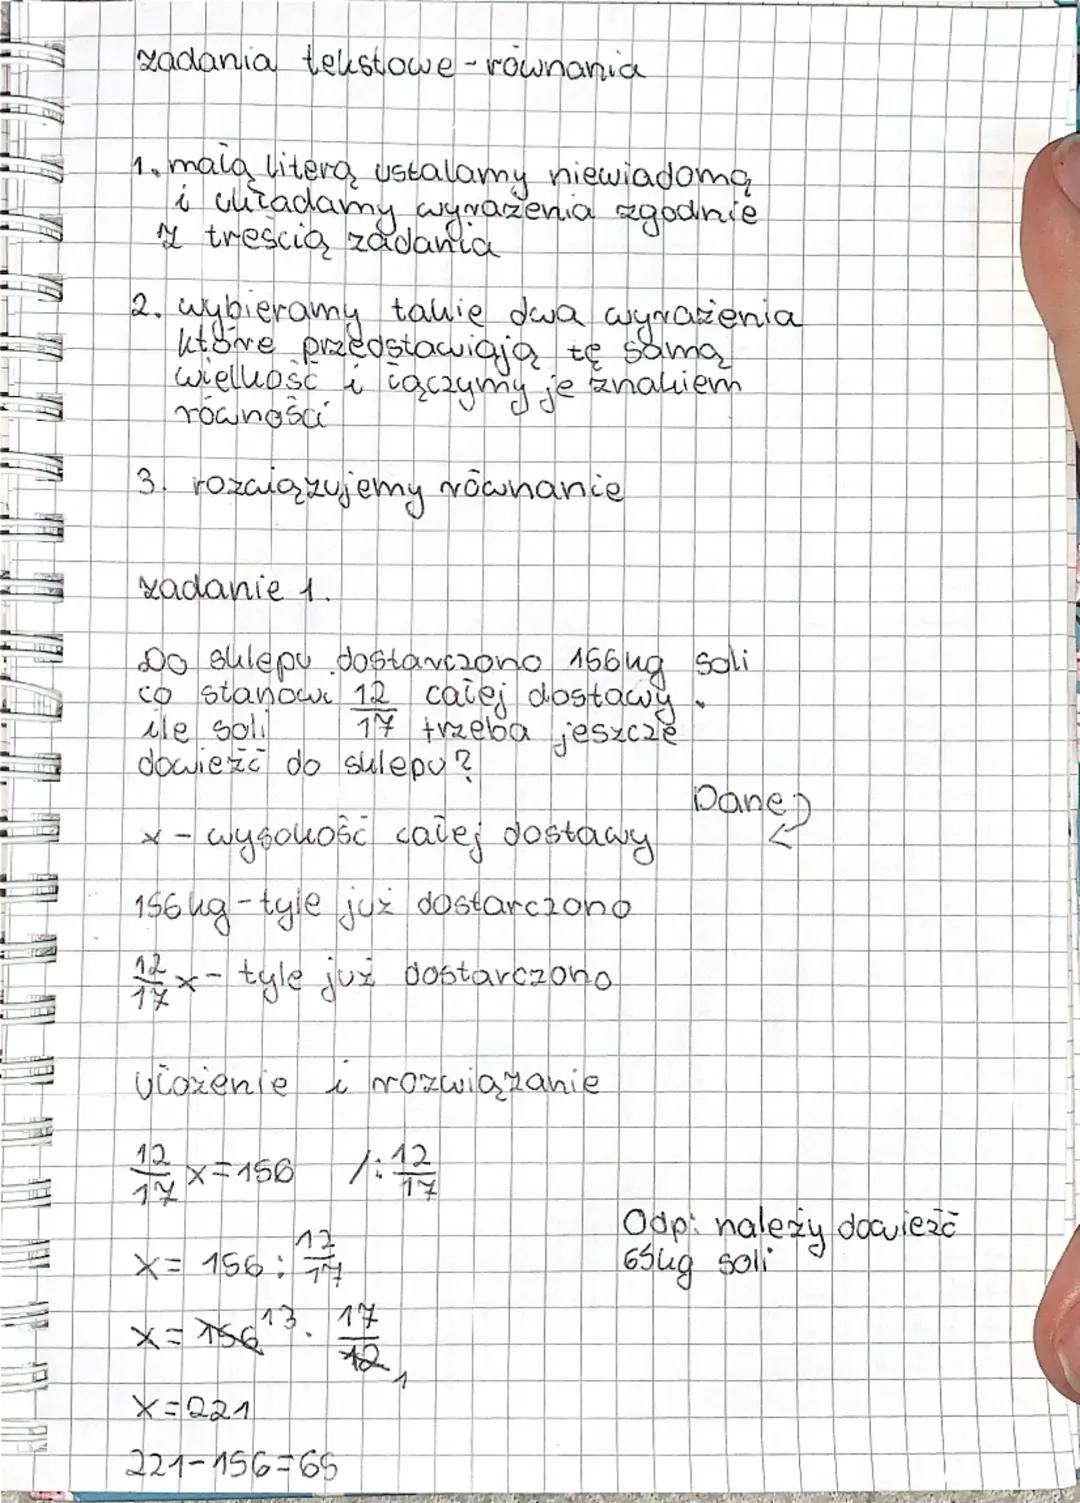 zadania tekstowe - równania
1. małą literą ustalamy niewiadomą
i układamy wyrażenia zgodnie
z treścią zadania
2. wybieramy takie dwa wyrażenia
które przedstawiają tę samą
wielkość i łączymy je znakiem
równości
3. rozwiązujemy równanie
zadanie 1.
Do sklepu dostarczono 156kg soli
co stanowi 12/17 całej dostawy.
ile soli trzeba jeszcze
dowieźć do sklepu?
Dane
x - wysokość całej dostawy
156kg - tyle już dostarczono
12/17 x - tyle już dostarczono
ułożenie i rozwiązanie
12/17 x = 156 /: 12/17
x = 156 : 12/17
x = 156 13 · 17/12 1
x = 221
221 - 156 = 65
Odp: należy dowieźć
65kg soli